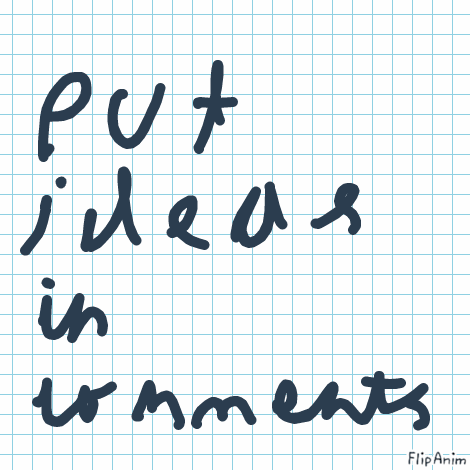 put
ideas
in
comments
FlipAnim